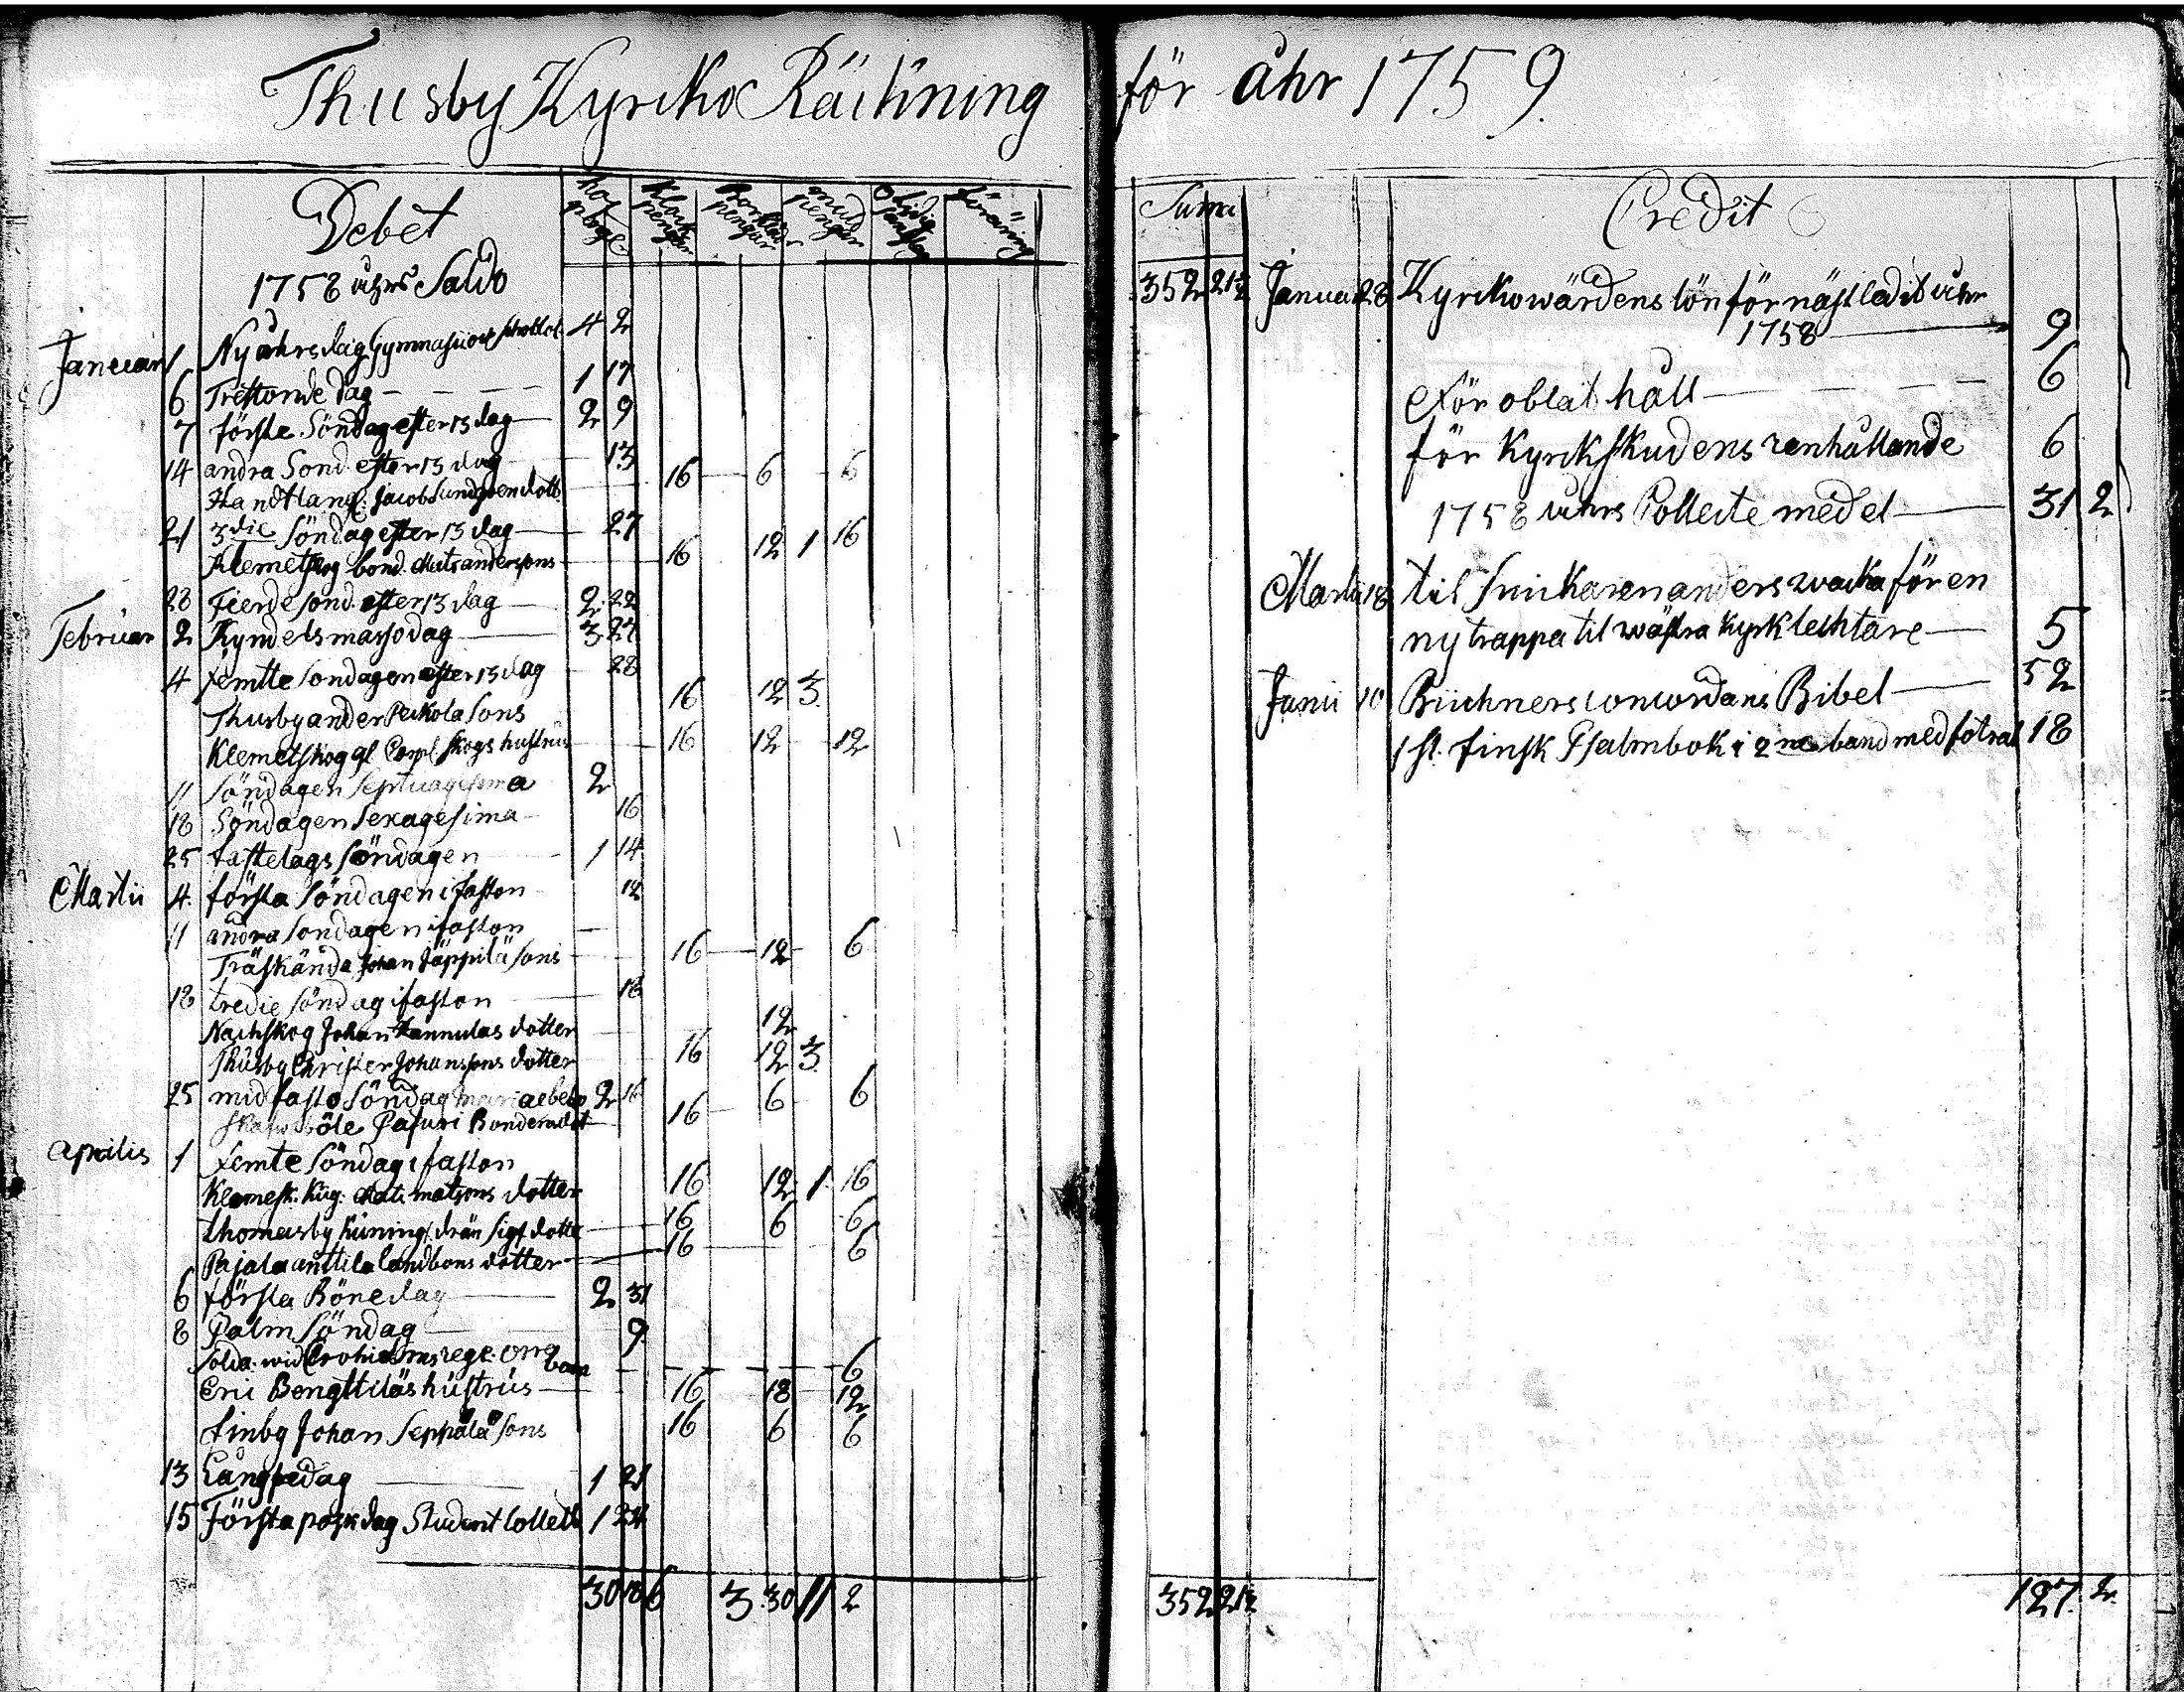 Thusby Kyrko Räkning för åhr 1759.
Debet
håf pengar klock pengar Borklädes pengar mull pengar föräring
1758 åhrs Saldo
Januari 1 Nyåhrsdag Gymnasii 4 2
6 Trettonde dag 1 17
7 förste Söndag efter 13 dag 2 9
14 andra Sönd. efter 13 dag 13
Handtlang. Jacob Lundgren dott 16 6 6
21 3die Söndag efter 13 dag 27
Klemetskog bond. Mats anderssons 16 12 1 16
28 Fierde sönd. efter 13 dag 2 22
Februari 2 Kyndelsmässodag 3 27
4 femtte söndagen efter 13 dag 28
Thusby ander Peckola Sons 16 12 3
Klemetskog gl. Corpl. Skogs hustrus 16 12 12
11 Söndagen Septuagesima 2
18 Söndagen Sexagesima 16
25 fastelags Söndagen 1 14
Martii 4. första Söndagen i faston 12
11 andra söndagen i faston
Träskända Johan Jäppilä Sons 16 12 6
18 tredie Söndag i faston 18
Nackskog Johan dotter 12
Thusby Christer Johanssons dotter 16 12 3
25 midfasto Söndag mariae 2 16
böle Pasuri Bondens 16 6 6
Aprilis 1 femte Söndag i faston
Klemesk. Mats matssons dotter 16 12 1 16
Thomasby dotte 16 6 6
Pajala anttila landbons dotter 16 6
6 första Bönedag 2 31
8 Palm Söndag 9
Solda. wid rege. 6
Eric Bengttiläs hustrus 16 18 12
finby Johan Seppälä Sons 16 6 6
13 Långfredag 1 21
15 Första poskdag Student Collect 1 24
30 18 6 3. 30 11 2
Suma
352 21½
352 21½
Credit
Januari 28 Kyrkowärdens lön för nästledit åhr
1758 9
För oblat håll 6
för Kyrkskudens renhållande 6
1758 åhrs Collecte medel 31 2
Martii 18 til Snickaren anders wacka för en
ny trappa til wästra kyrklechtare 5
Junii 10 Büchners concordans Bibel 52
1 st. finsk Psalmbok i 2ne band med fotral 18
127. 2.